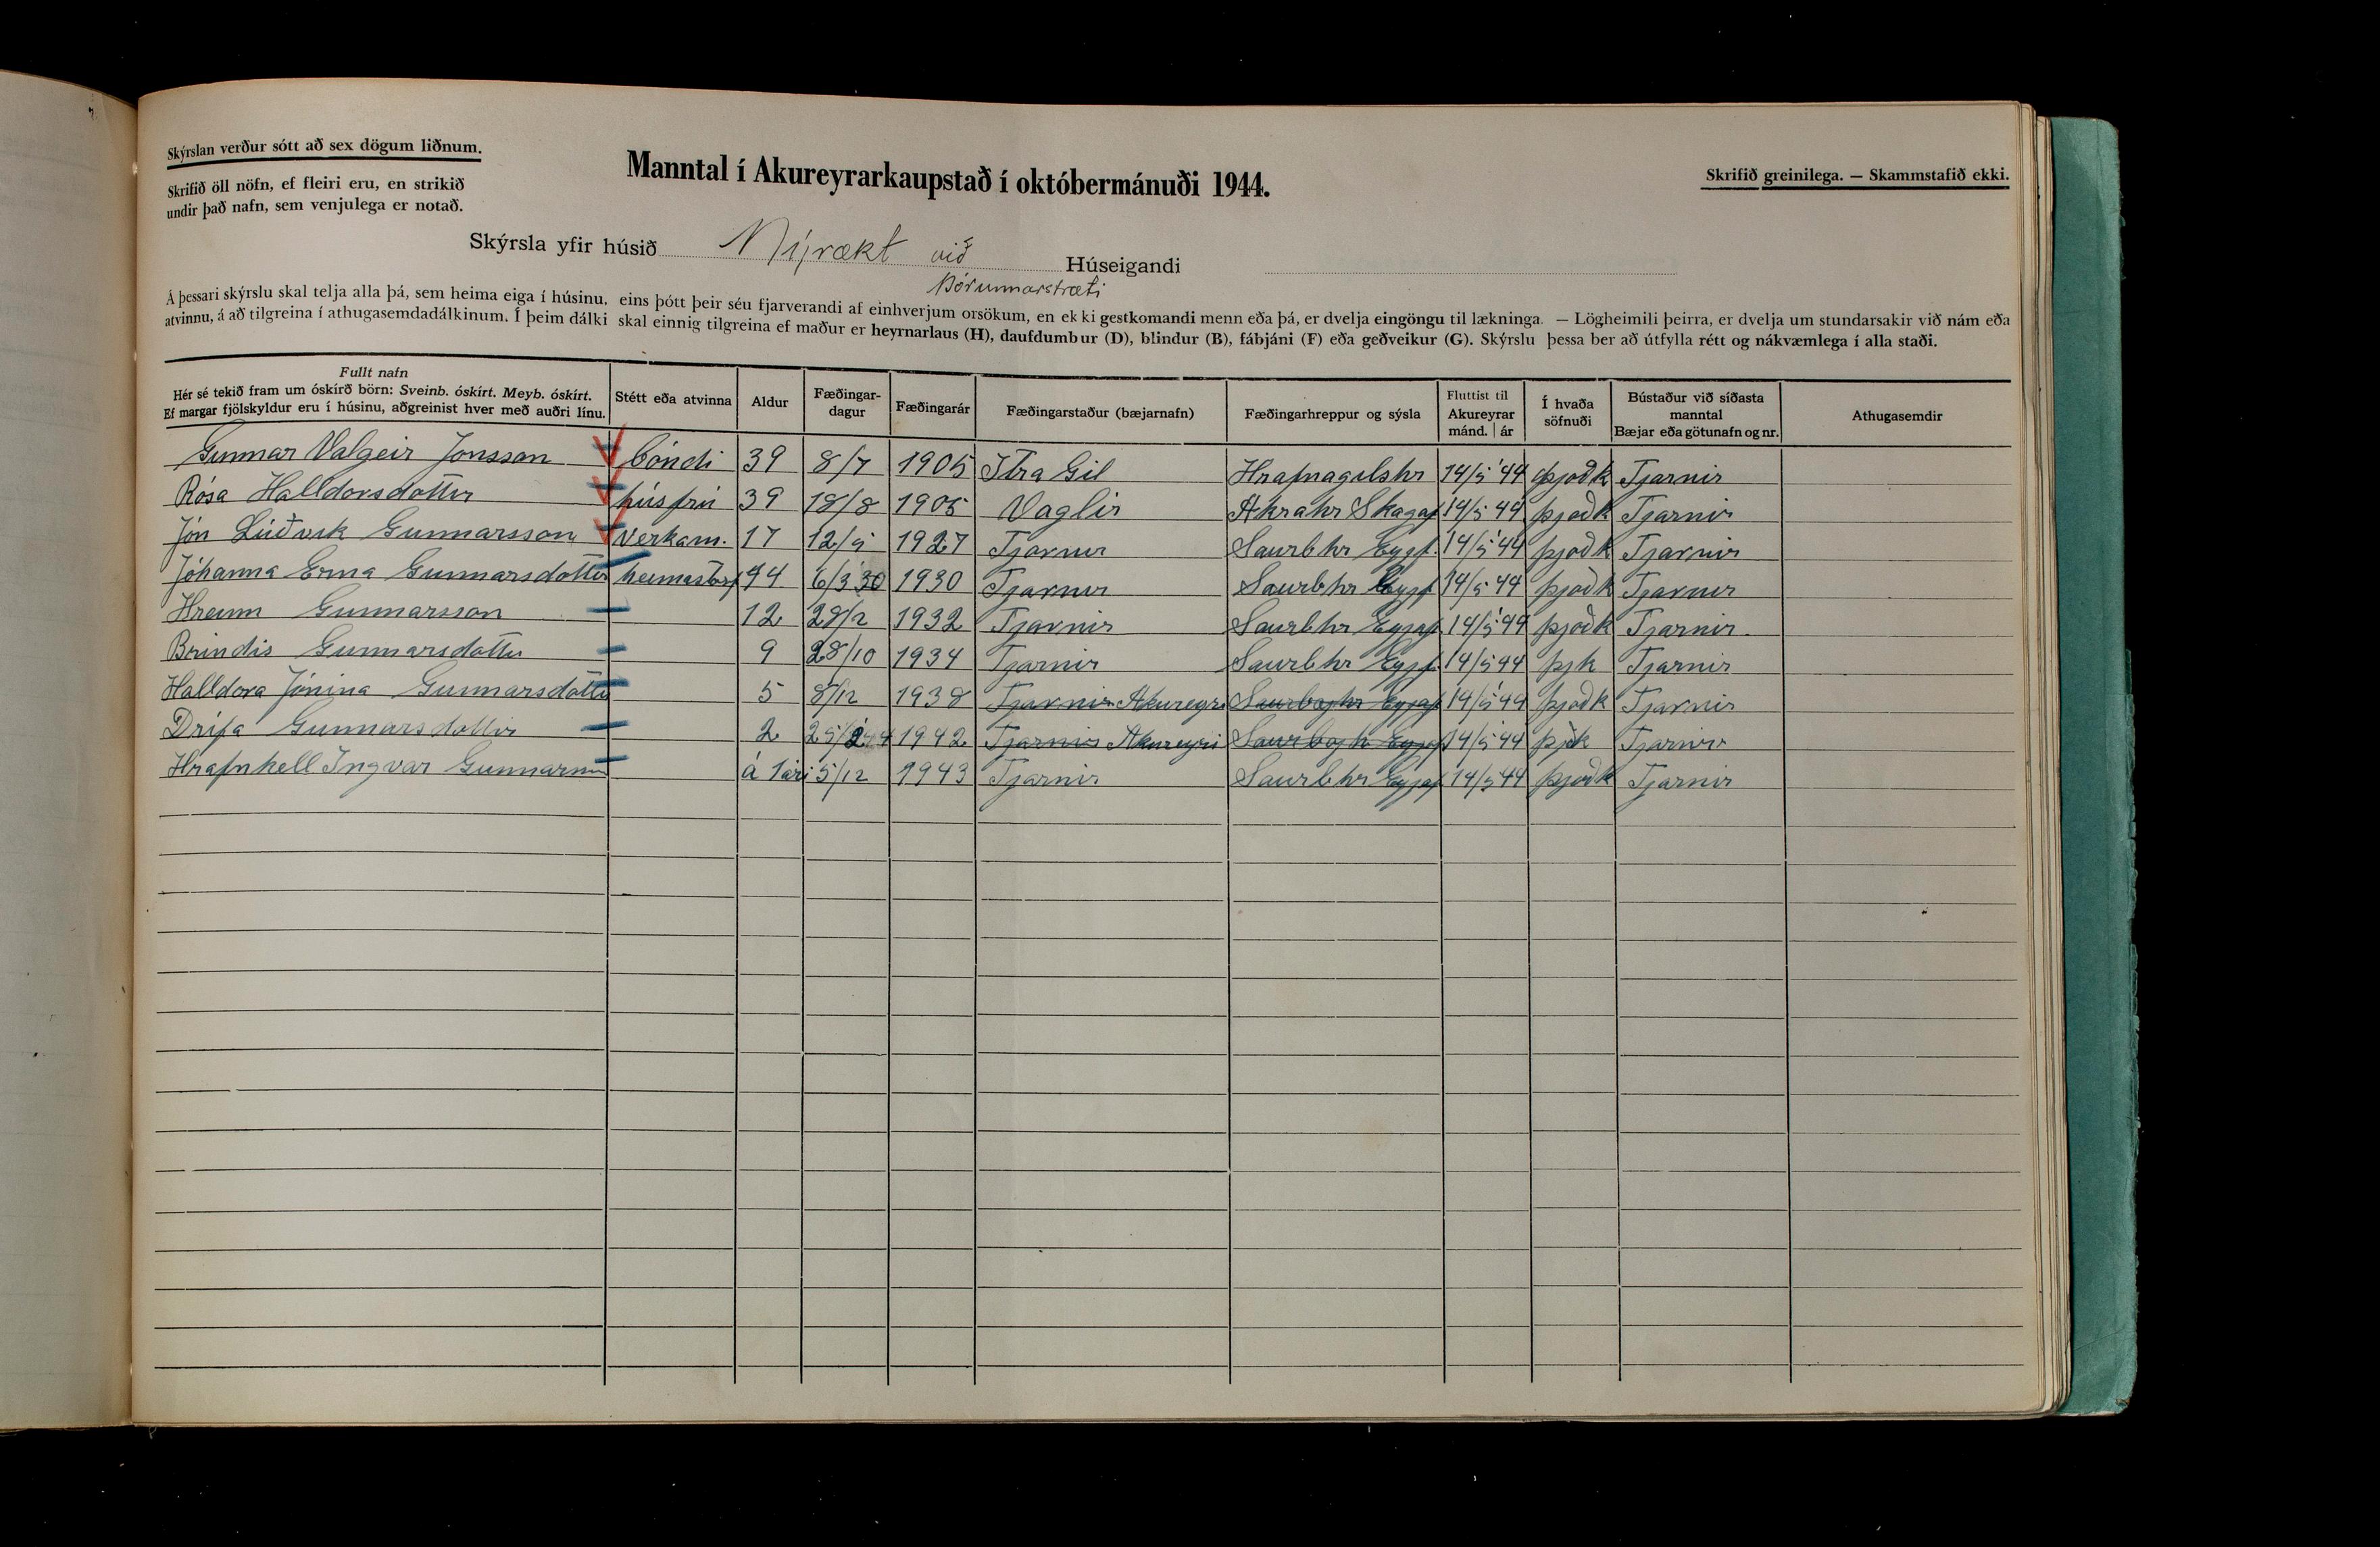 Skýrslan verður sótt að sex dögum liðnum.
Skrifið öll nöfn, ef fleiri eru, en strikið
undir það nafn, sem venjulega er notað.
Manntal í Akureyrarkaupstað í októbermánuði 1944.
Skrifið greinilega. — Skammstafið ekki.
Skýrsla yfir húsið Nýrækt við Húseigandi
Þórunnarstræti
Á þessari skýrslu skal telja alla þá, sem heima eiga í húsinu, eins þótt þeir séu fjarverandi af einhverjum orsökum, en ekki gestkomandi menn eða þá, er dvelja eingöngu til lækninga. — Lögheimili þeirra, er dvelja um stundarsakir við nám eða
atvinnu, á að tilgreina í athugasemdadálkinum. Í þeim dálki skal einnig tilgreina ef maður er heyrnarlaus (H), daufdumbur (D), blindur (B), fábjáni (F) eða geðveikur (G). Skýrslu þessa ber að útfylla rétt og nákvæmlega í alla staði.
Fullt nafn
Hér sé tekið fram um óskírð börn: Sveinb. óskírt. Meyb. óskírt.
Ef margar fjölskyldur eru í húsinu, aðgreinist hver með auðri línu.
Stétt eða atvinna
Aldur
Fæðingar-
dagur
Fæðingarár
Fæðingarstaður (bæjarnafn)
Fæðingarhreppur og sýsla
Fluttist til
Akureyrar
mánd. | ár
Í hvaða
söfnuði
Bústaður við síðasta
manntal
Bæjar eða götunafn og nr.
Athugasemdir
Gunnar Valgeir Jónsson bóndi 39 8/7 1905 Ytra Gil Hrafnagilshr 14/5 '44 þjóðk Tjarnir
Rósa Halldorsdottir húsfrú 39 18/8 1905 Vaglir Akrahr Skagaf 14/5 44 þjoðk Tjarnir
Jón Lúðvik Gunnarsson Verkam. 17 12/5 1927 Tjarnir Saurbhr Eyjf. 14/5 '44 þjoðk Tjarnir
Jóhanna Erna Gunnarsdottir 14 6/3 30 1930 Tjarnir Saurbhr Eyjf 14/5 44 þjoðk Tjarnir
Hreinn Gunnarsson 12 28/2 1932 Tjarnir Saurbhr Eyjaf. 14/5 44 þjoðk Tjarnir
Brindis Gunnarsdottir 9 28/10 1934 Tjarnir Saurbhr Eyjf. 14/5 44 þjk Tjarnir
Halldora Jónina Gunnarsdóttir 5 8/12 1938 Tjarnir Akureyri Saurbæjhr Eyjaf 14/5 44 þjoðk Tjarnir
Drífa Gunnarsdottir 2 1942 Tjarnir Akureyri Saurbæjh Eyjaf 14/5 44 þjk Tjarnir
Hrafnkell Ingvar Gunnarsson á 1 ári 5/12 1943 Tjarnir Saurbhr Eyjaf 14/5 44 þjoðk Tjarnir